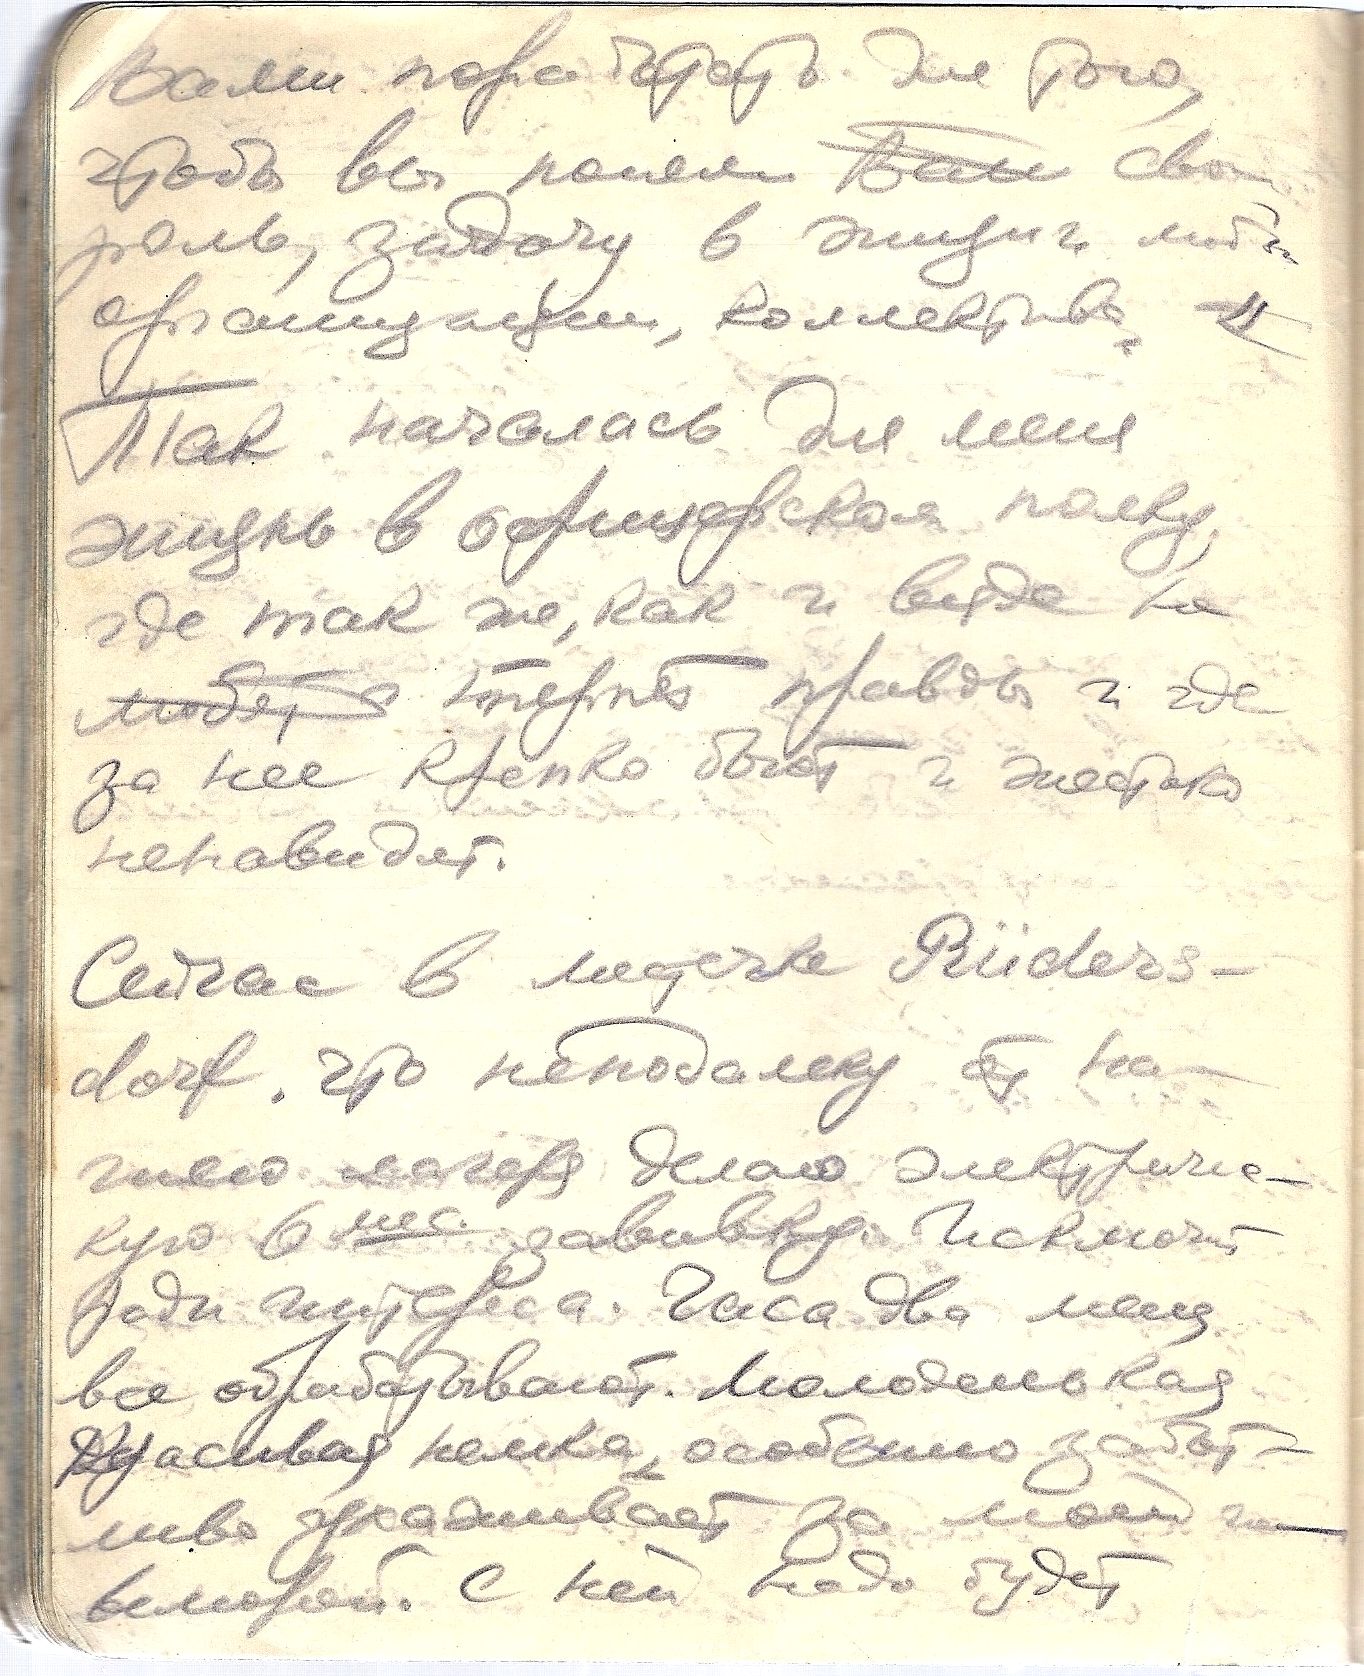 Вами поработать для того,
чтобы вы поняли Вам свою
роль, задачу в жизни любой
организации, коллектива. "
Так началась для меня
жизнь в офицерском полку,
где так же, как и везде не
любят терпят правды и где
за нее крепко бьют и жестоко
ненавидят.
Сейчас в местечке Rüders-
dorf, что неподалеку от на-
шего лагеря делаю электриче-
кую 6 мес. завивку. Исключит
ради интереса. Часа два меня
все обрабатывают. Молоденькая
Красивая немка, особенно забот-
ливо ухаживает за моей ше-
велюрой. С ней надо будет